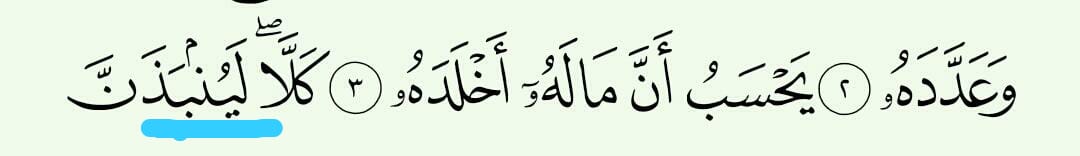 وَعَدَّدَهُۥ ٢ يَحْسَبُ أَنَّ مَالَهُۥٓ أَخْلَدَهُۥ ٣ كَلَّا ۖ لَيُنۢبَذَنَّ